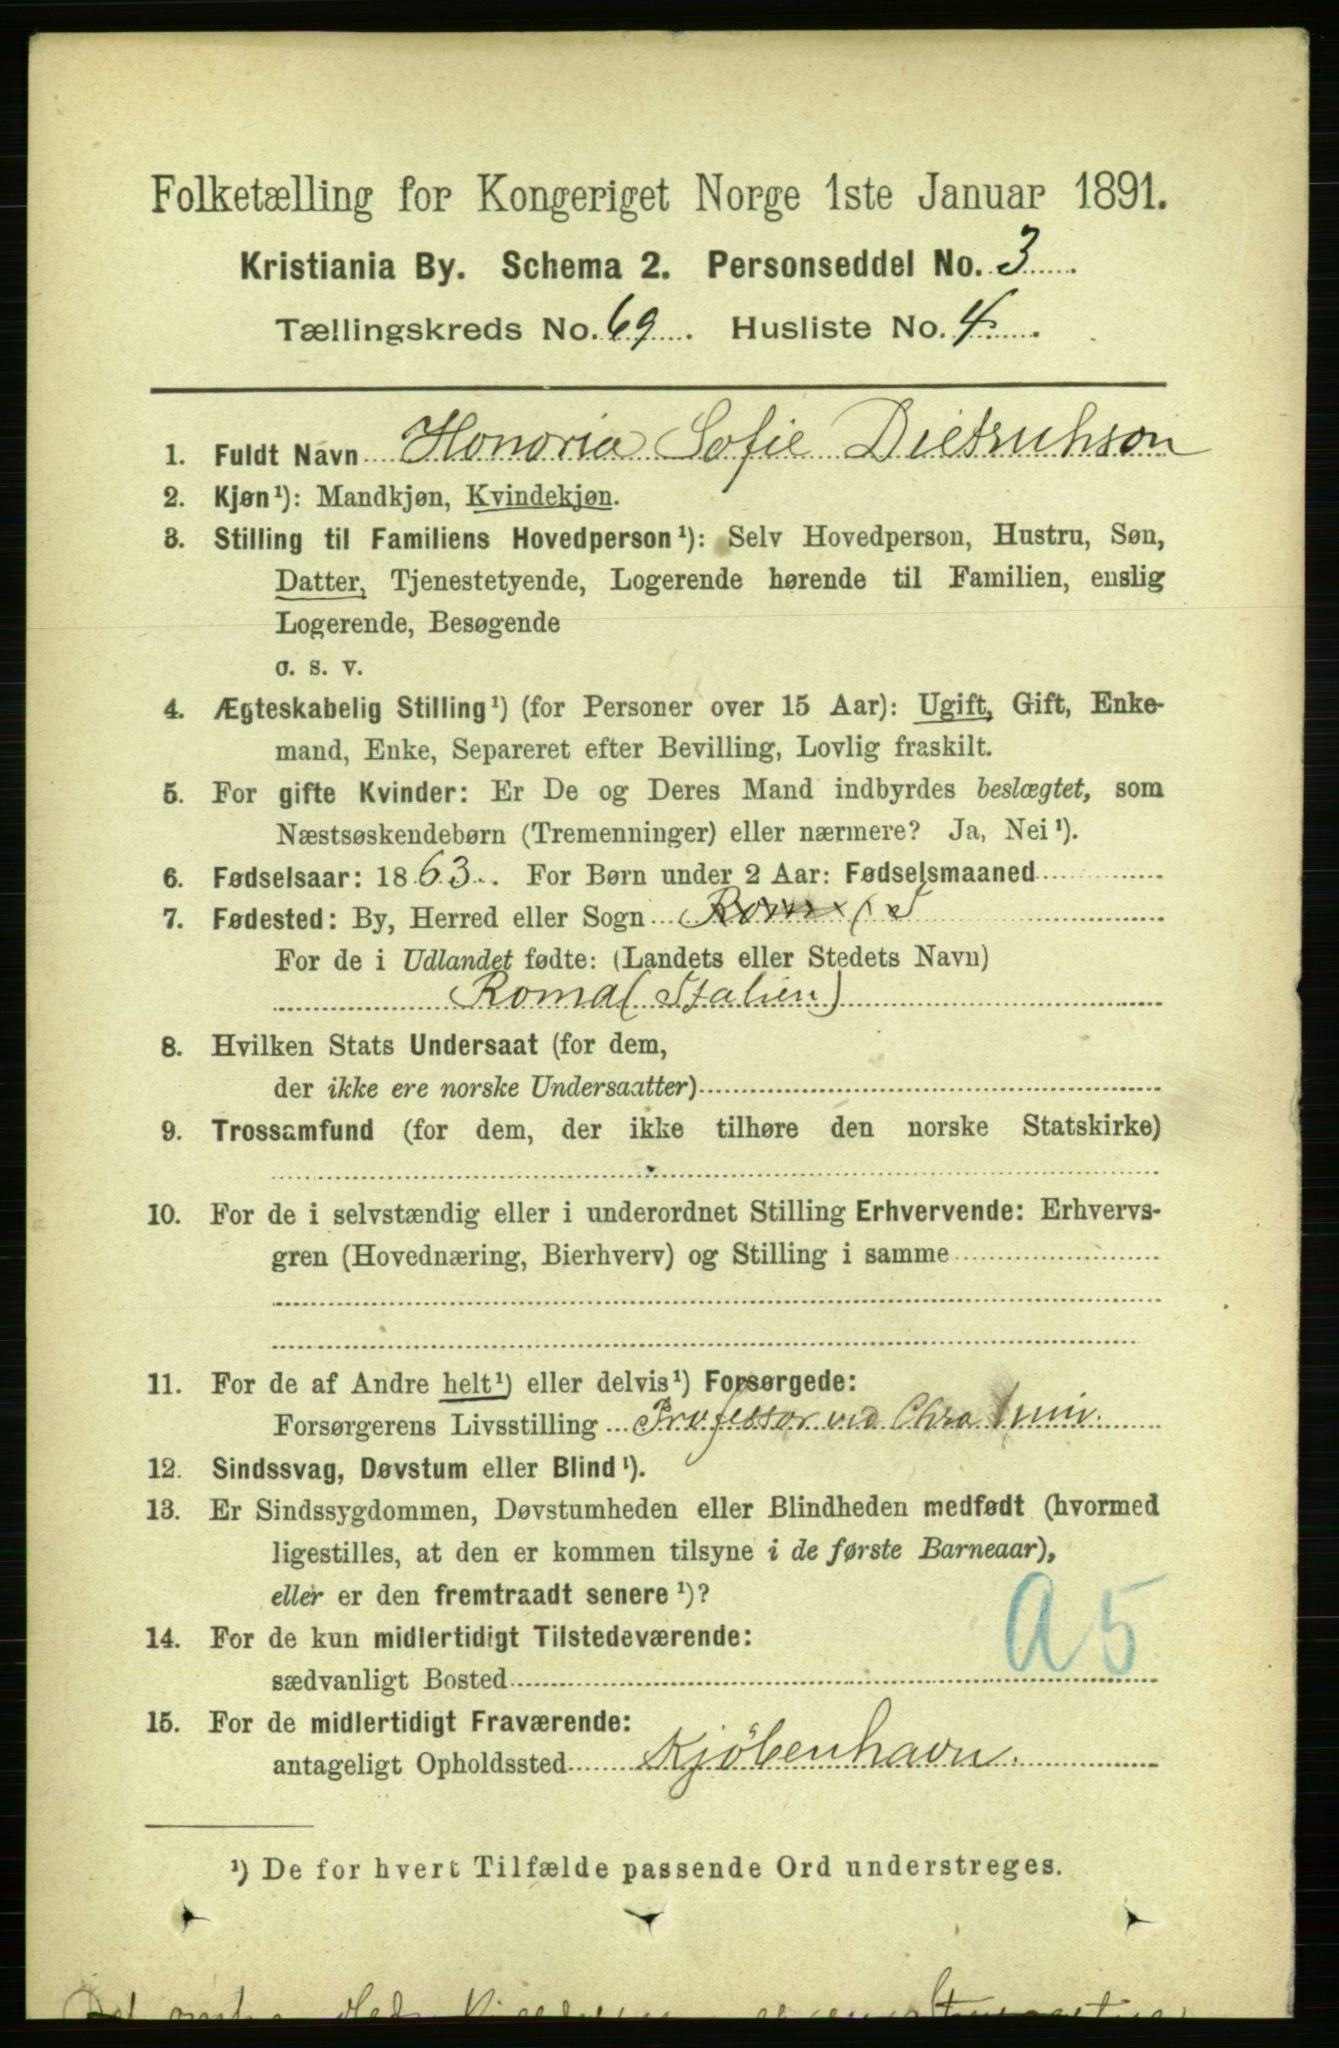 Folketælling for Kongeriget Norge 1ste Januar 1891.
Kristiania By. Schema 2. Personseddel No. 3
Tællingskreds No. 69. Husliste No. 4.
1. Fuldt Navn Honoria Sofie Dietrichson
2. Kjøn¹): Mandkjøn, Kvindekjøn.
3. Stilling til Familiens Hovedperson¹): Selv Hovedperson, Hustru, Søn,
Datter, Tjenestetyende, Logerende hørende til Familien, enslig
Logerende, Besøgende
o. s. v.
4. Ægteskabelig Stilling¹) (for Personer over 15 Aar): Ugift, Gift, Enke-
mand, Enke, Separeret efter Bevilling, Lovlig fraskilt.
5. For gifte Kvinder: Er De og Deres Mand indbyrdes beslægtet, som
Næstsøskendebørn (Tremenninger) eller nærmere? Ja, Nei¹).
6. Fødselsaar: 1863. For Børn under 2 Aar: Fødselsmaaned
7. Fødested: By, Herred eller Sogn
For de i Udlandet fødte: (Landets eller Stedets Navn)
Roma (Italien)
8. Hvilken Stats Undersaat (for dem,
der ikke ere norske Undersaatter)
9. Trossamfund (for dem, der ikke tilhøre den norske Statskirke)
10. For de i selvstændig eller i underordnet Stilling Erhvervende: Erhvervs-
gren (Hovednæring, Bierhverv) og Stilling i samme
11. For de af Andre helt¹) eller delvis¹) Forsørgede:
Forsørgerens Livsstilling Professor ved Chra Univ.
12. Sindssvag, Døvstum eller Blind¹).
13. Er Sindssygdommen, Døvstumheden eller Blindheden medfødt (hvormed
ligestilles, at den er kommen tilsyne i de første Barneaar),
eller er den fremtraadt senere¹)?
A5
14. For de kun midlertidigt Tilstedeværende:
sædvanligt Bosted
15. For de midlertidigt Fraværende:
antageligt Opholdssted Kjöbenhavn.
¹) De for hvert Tilfælde passende Ord understreges.